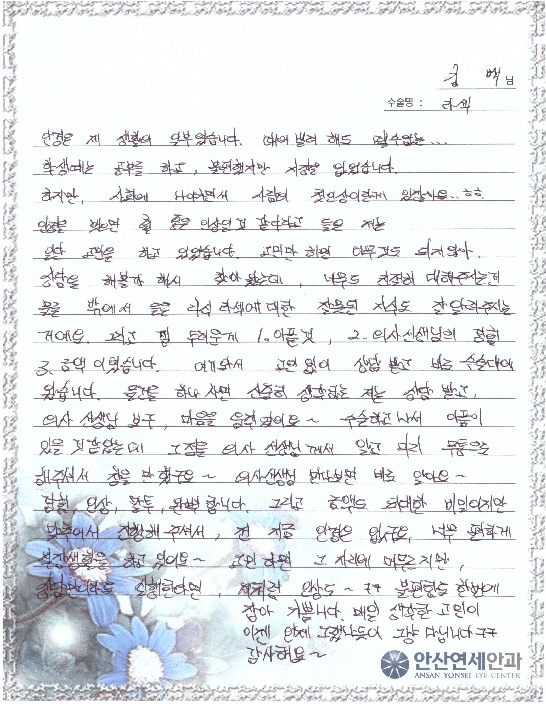 김 백 님
수술명 : 라섹
안경은 제 생활의 일부였습니다. 떼어 버려 해도 뗄수없는...
학생때는 공부를 하고, 불편했지만 지장은 없었습니다.
하지만, 사회에 나아가면서 사람의 첫인상이란게 있잖아요..ㅎㅎ
안경을 벗으면 좀 좋은 인상일것 같다라고 들은 저는
일단 고민을 하고 있었습니다. 고민만 하면 아무것도 되지않아
상담을 해볼까 해서 찾아 왔는데, 너무도 친절히 대해주시는건
물론 밖에서 들은 라식 라섹에 대한 잘못된 지식도 잘 알려주시는
거에요. 그리고 젤 두려운게 1. 아픔것, 2. 의사선생님의 경험
3. 금액 이였습니다. 여기와서 고민 없이 상담 받고 바로 수술대에
왔습니다. 물건을 하나 사면 신중히 생각하는 저는 상담 받고,
의사 선생님 보구, 마음을 움직였어요~ 수술하고 나서 아픔이
있을 것 같았는데 그점을 의사 선생님께서 알고 미리 무통으로
해주셔서 잠을 잘 잤구요~ 의사선생님 만나보면 바로 알아요~
경험, 인상, 말투, 완벽 합니다. 그리고 금액도 최대한 비밀이지만
맞추어서 진행해 주셔서, 전 지금 안경은 없구요, 너무 편하게
직장생활을 하고 있어요~ 고민 하면 그 자리에 머무르지만,
상담만이라도 진행한다면, 저처럼 인상도~ ㅋㅋ 불편함도 한번에
잡아 기쁩니다. 매일 생각한 고민이
이젠 언제 그랬냐는듯이 그냥 다닙니다 ㅋㅋ
감사해요~
안산연세안과
ANSAN YONSEI EYE CENTER